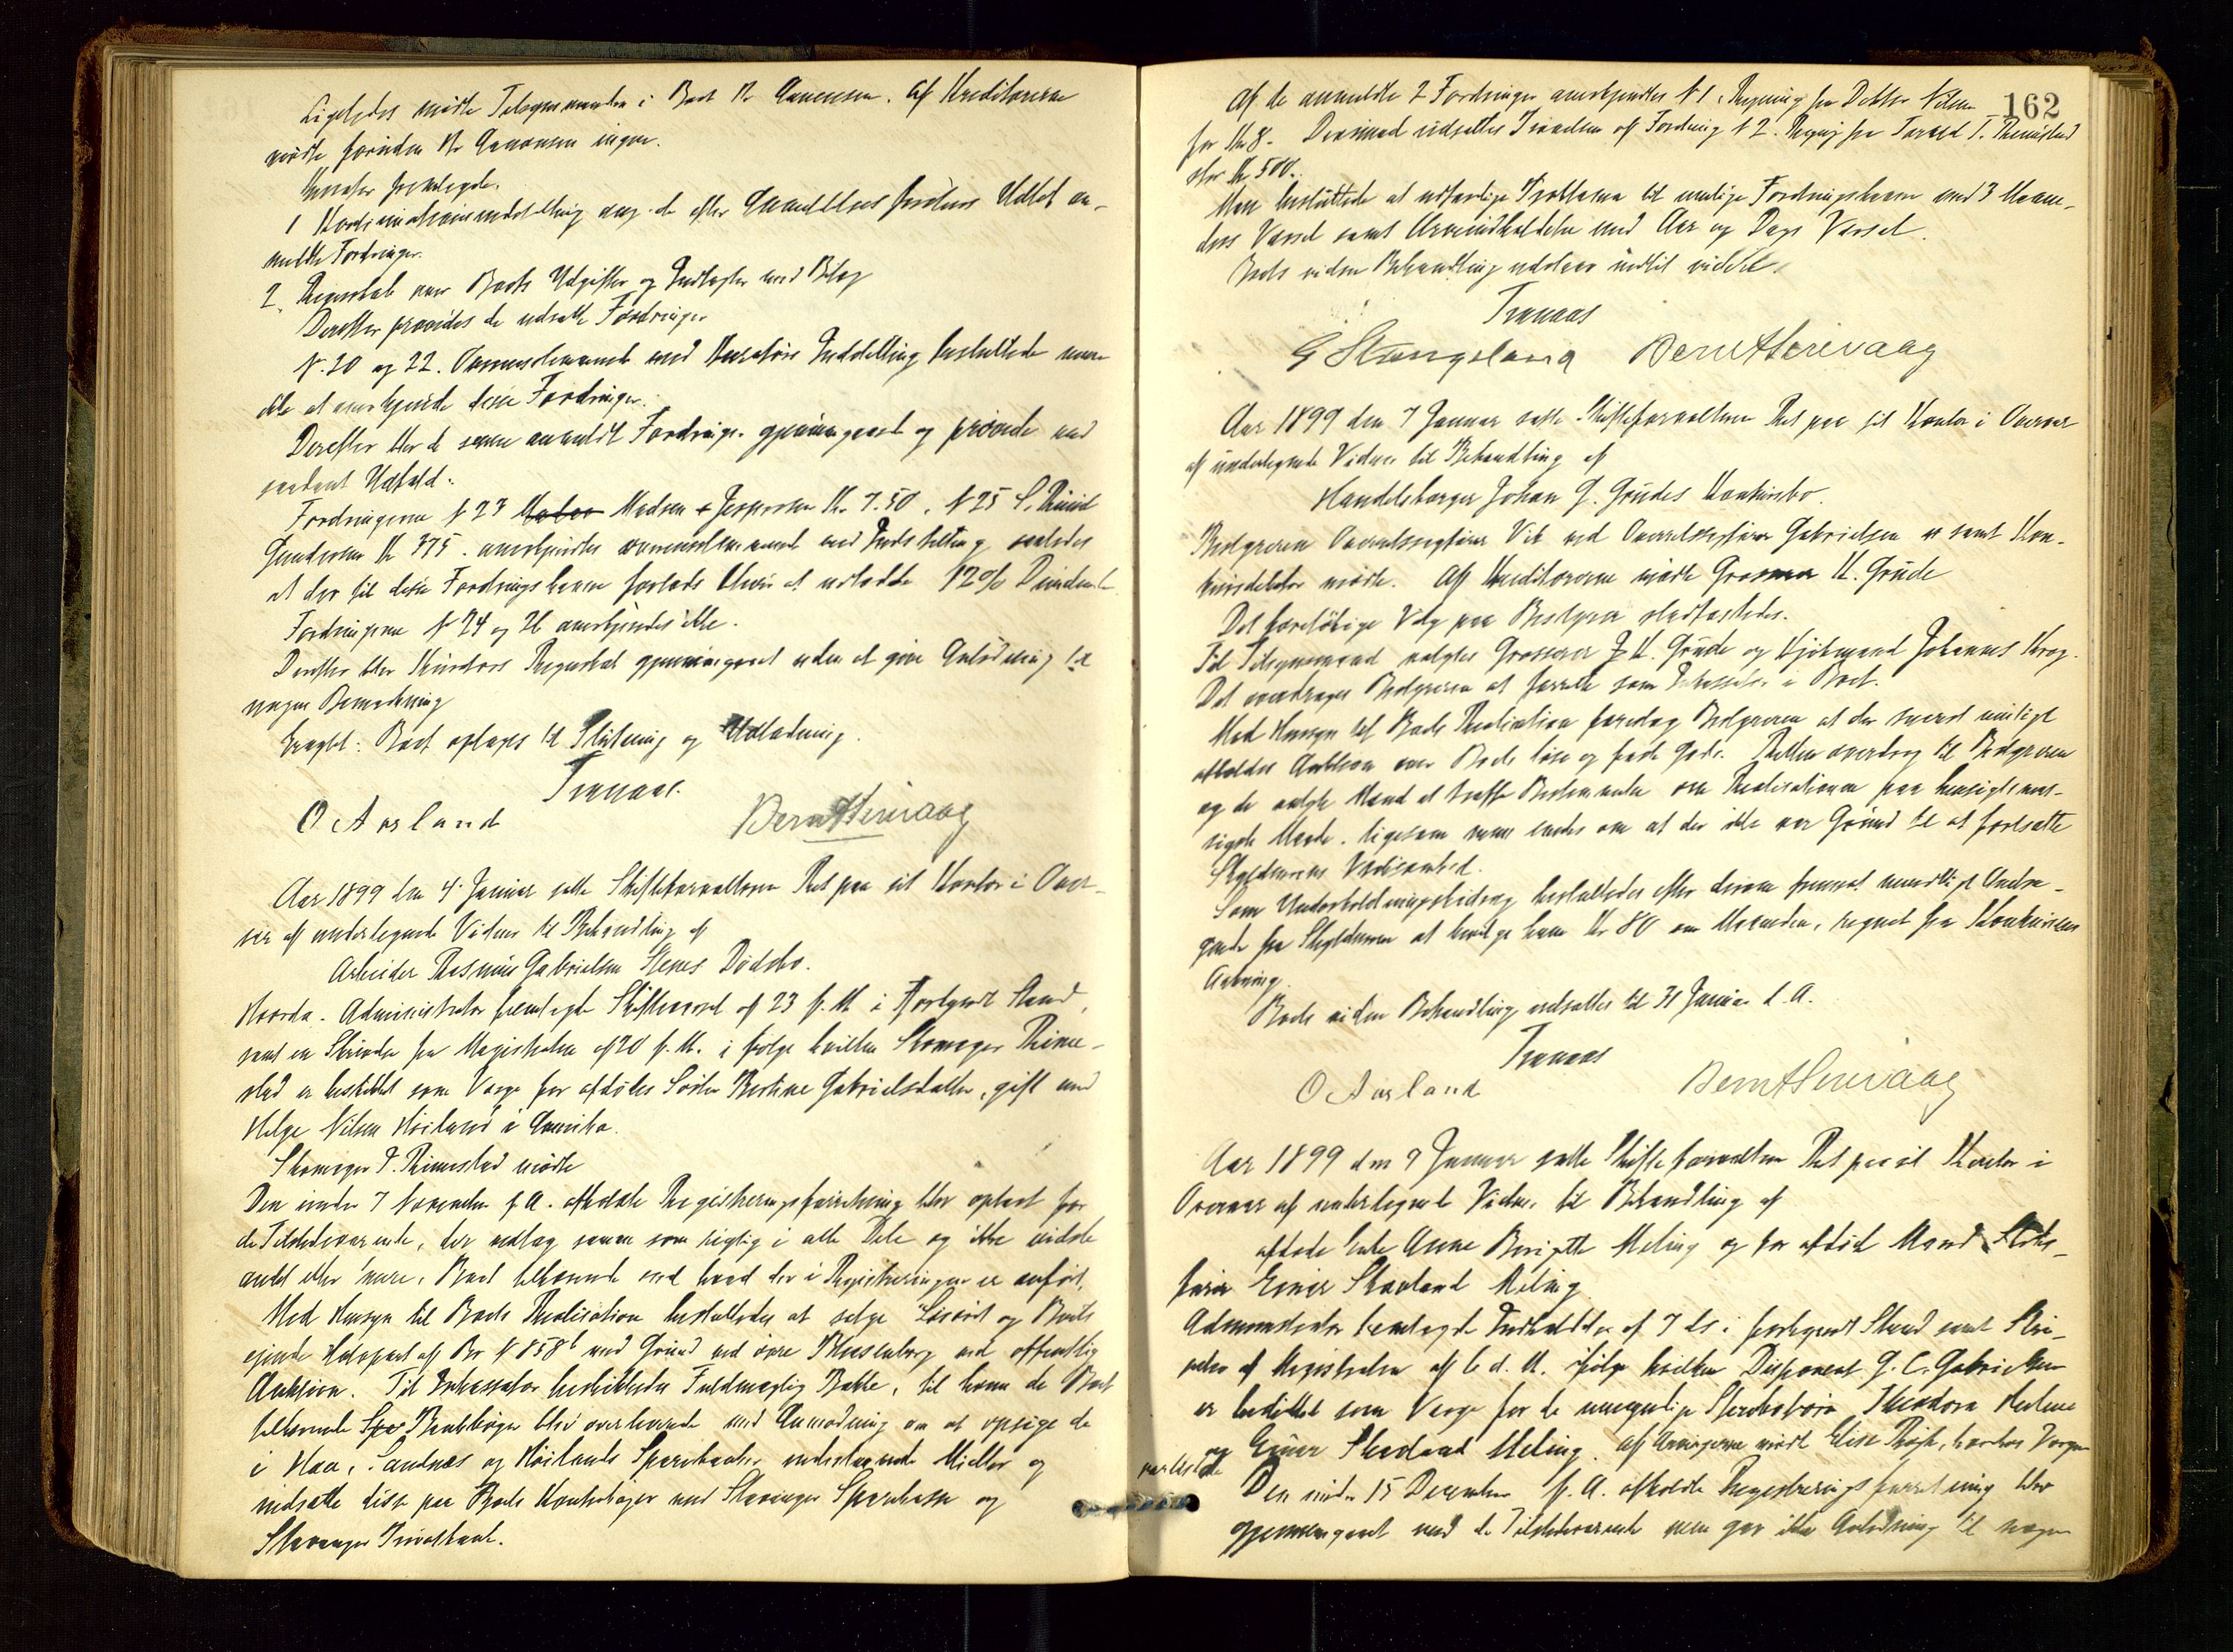 Ligeledes mødte Tilsynsmanden i Boet Kr Aanensen. Af Kreditorerne
mødte foruden Kr Aanensen ingen.
Kurator fremlagde.
1 Kurators indstilling ang. de efter Anmeldelses fristens Udløb an-
meldte Fordringer.
2. Regnskab over Boets Udgifter og Indtægter med Bilag
Derefter prøvedes de udsatte Fordringer
N. 20 og 22. Overensstemmende med Kurators Indstilling besluttede man
ikke at anerkjende disse Fordringer.
Derefter blev de senere anmeldte Fordringer gjennemgaaet og prøvede med
saadant Udfald:
Fordringerne N 23 Madsen & Jespersen Kr. 7.50, N 25 S.
Gundersen Kr 375. anerkjendtes overensstemmende med Indstilling saaledes
at der til disse Fordringshavere forlods bliver at udlodde 12% Dividende
Fordringerne N 24 og 26 anerkjendes ikke.
Derefter blev Kurators Regnskab gjennemgaaet uden at give Anledning til
nogen Bemærkning
Eragtet: Boet optages til Slutning og Udlodning.
Tranaas.
O Aarland Bernt Herivaag
Aar 1899 den 4 Januar satte Skifteforvalteren Ret paa sit Kontor i Over-
vær af undertegnede Vidner til Behandling af
Arbeider Rasmus Gabrielsen Stenes Dødsbo.
Hvorda. Administrator fremlagde Skiftevarsel af 23 f. M. i forkyndt Stand,
samt en Skrivelse fra Magistraten af 20 f. M. i følge hvilken Skomager Rime-
stad er beskikket som Værge for afdødes Søster Bertine Gabrielsdatter, gift med
Helge Nilsen Høiland i Amerika.
Skomager T. Rimestad mødte
Den under 7 November f. A. afholdte Registreringsforretning blev oplæst for
de Tilstedeværende, der vedtog samme som rigtig i alle Dele og ikke vidste
andet eller mere, Boet tilhørende end hvad der i Registreringen er anført.
Med Hensyn til Boets Realisation besluttedes at sælge Løsøret og Boets
eiende Halvpart af Br N 858b med Grund ved øvre Blaasenborg ved offentlig
Auktion. Til Inkassator beskikkedes Fuldmægtig Bakke, til hvem de Boet
tilhørende Bankbøger blev overleverede med Anmodning om at opsige de
i Haa, Sandnæs og Høilands Sparebanker indestaaende Midler og
indsætte disse paa Boets Kontrabøger med Stavanger Sparekasse og
Stavanger Privatbank.
162
Af de anmeldte 2 Fordringer anerkjendtes N 1, Regning fra Doktor Nilsen
for Kr 8. Derimod udsattes Prøvelsen af Fordring N 2. Regning fra Torvald T. Rimestad
stor Kr 500.
Man besluttede at udfærdige Proklama til mulige Fordringshavere med 3 Maane-
ders Varsel samt Arveindkaldelse med Aar og Dags Varsel.
Boets videre Behandling udstaar indtil videre.
Tranaas
G Stangeland Bernt Herivaag
Aar 1899 den 7 Januar satte Skifteforvalteren Ret paa sit Kontor i Overvær
af undertegnede Vidner til Behandling af
Handelsborger Johan G. Grudes Konkursbo.
Bestyreren Overretssagfører Vik ved Overretssagfører Gabrielsen samt Kon-
kursdebitor mødte. Af Kreditorerne mødte Grosserer H. Grude
Det foreløbige Valg paa Bestyrer stadfæstedes.
Til Tilsynsmænd valgtes Grosserer H. Grude og Kjøbmand Johannes Krog.
Det overdrages Bestyreren at forrette som Inkassator i Boet.
Med Hensyn til Boets Realisation foreslog Bestyreren at der snarest muligt
afholdes Auktion over Boets løse og faste Gods. Retten overdrog til Bestyreren
og de valgte Mænd at træffe Bestemmelse om Realisationen paa hensigtsmæs-
sigste Maade, ligesom man enedes om at der ikke var Grund til at fortsætte
Skyldnerens Virksomhed.
Som Underholdningsbidrag besluttedes efter derom fremsat mundtligt Andra-
gende fra Skyldneren at bevilge ham Kr 80 om Maaneden, regnet fra Konkursens
Aabning.
Boets videre Behandling udsattes til 31 Januar d. A.
Tranaas
O Aarland Bernt Herivaag
Aar 1899 den 9 Januar satte Skifteforvalteren Ret paa sit Kontor i
Overvær af undertegnede Vidner til Behandling af
afdøde Enke Anne Berigitte Meling og før afdød Mand Skibs-
fører Einar Skavland Meling.
Administrator fremlagde Indkaldelse af 7 ds i forkyndt Stand samt Skri-
velse af Magistraten af 6 d. M. ifølge hvilken Disponent G. C. Gabrielsen
er beskikket som Værge for de umyndige Theodora Helene
og Einar Skavland Meling. Af Arvingerne mødte Elise hvorhos Værgen
var tilstede
Den under 15 December f. A. afholdte Registreringsforretning blev
gjennemgaaet med de Tilstedeværende men gav ikke Anledning til nogen